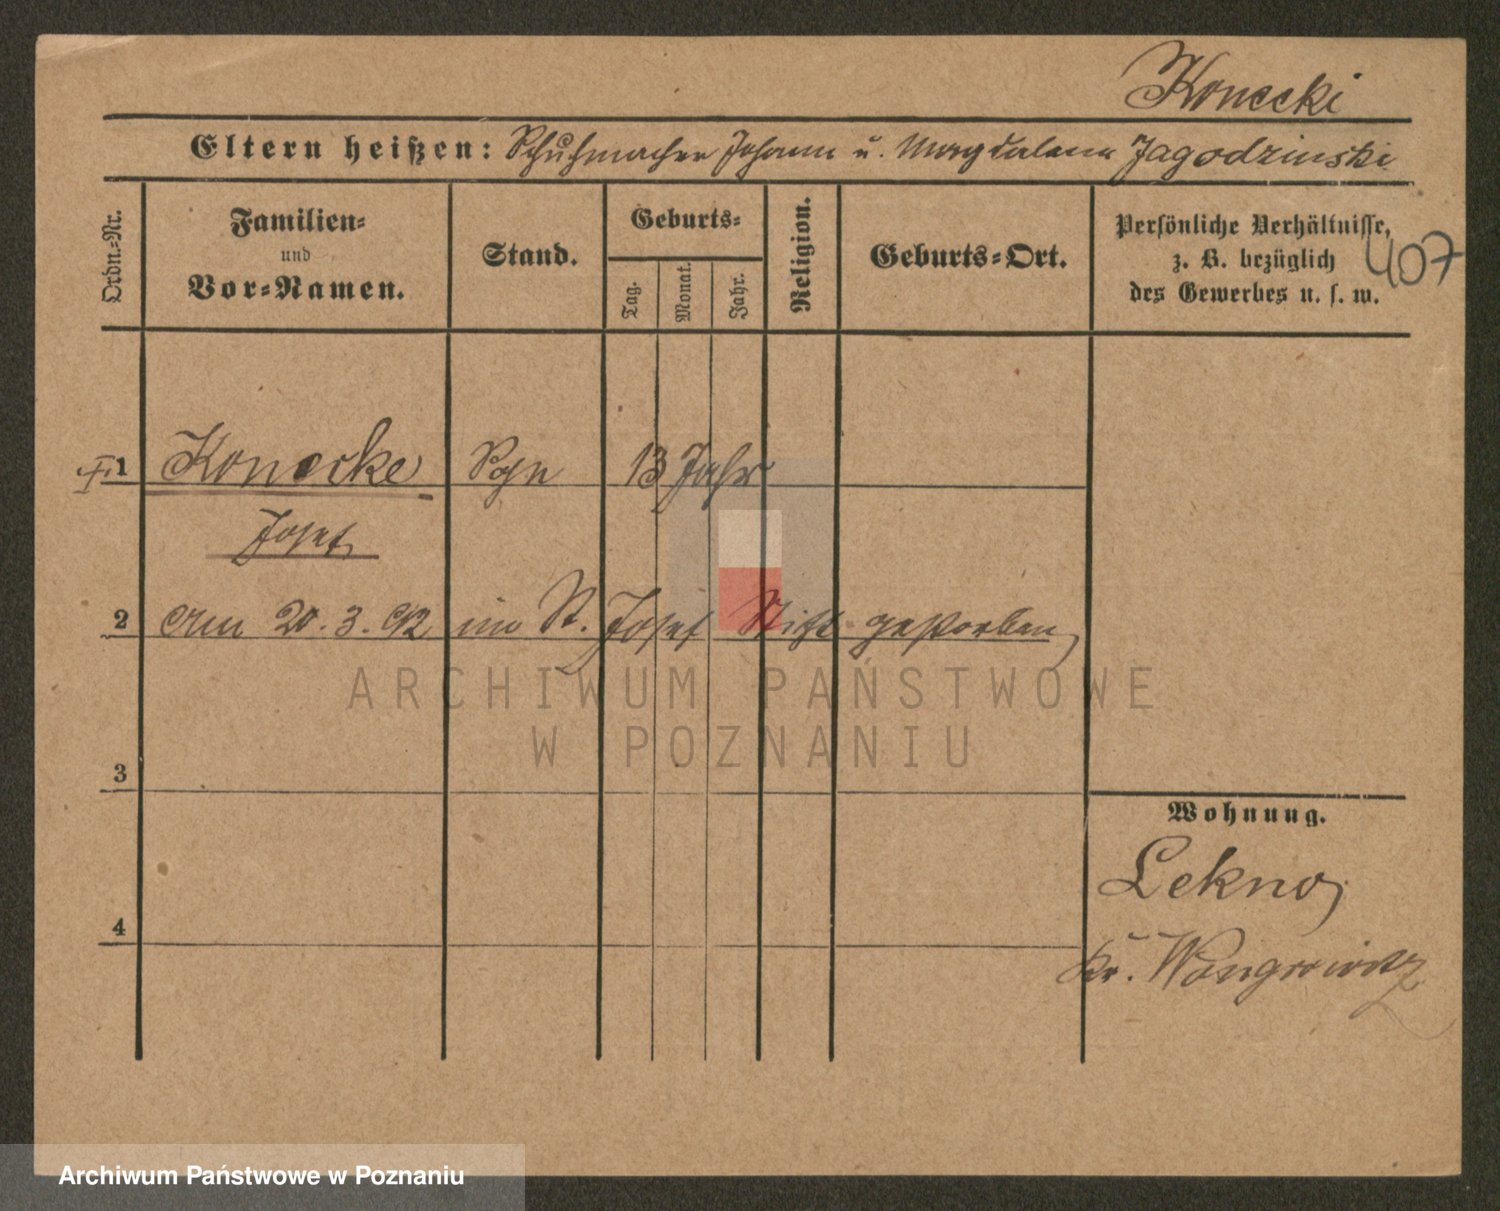 Konecki
Eltern heißen: Schuhmacher Johann u. Magdalena Jagodzinski
Ordn.-Nr.
Familien-
und
Vor-Namen.
Stand.
Geburts-
Tag.
Monat.
Jahr.
Religion.
Geburts-Ort.
Persönliche Verhältnisse,
z. B. bezüglich
des Gewerbes u. s. w.
407
1 Konecke 13 Jahr
Josef
2 Am 20. 3. 92 im St. Josef Stift gestorben
ARCHIWUM PAŃSTWOWE
W POZNANIU
3
Wohnung.
Lekno,
4
Kr. Wongrowitz
Archiwum Państwowe w Poznaniu